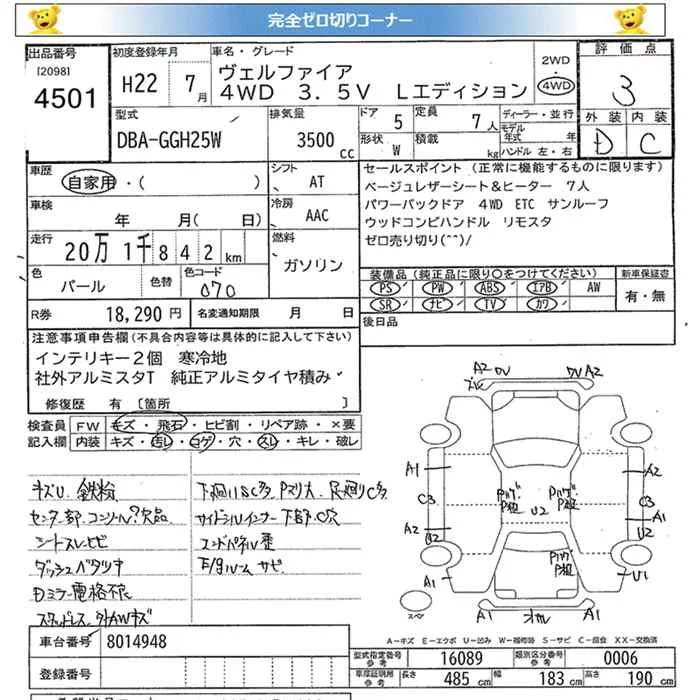 完全ゼロ切りコーナー
出品番号
[2098]
4501
初度登録年月
H22 7月
車名・グレード
ヴェルファイア
4WD 3.5V Lエディション
2WD
・
4WD
評価点
3
外装 内装
D C
型式
DBA-GGH25W
排気量
3500cc
ドア 5
定員 7人
形状 W
積載 kg
ディーラー・並行
モデル年式 年
ハンドル 左・右
車歴
自家用・( )
車検
年 月( 日)
走行
20万1千842km
色
パール
色替
色コード
070
シフト
AT
冷房
AAC
燃料
ガソリン
セールスポイント(正常に機能するものに限ります)
ベージュレザーシート&ヒーター 7人
パワーバックドア 4WD ETC サンルーフ
ウッドコンビハンドル リモスタ
ゼロ売り切り(^^)/
装備品(純正品に限り○をつけてください)
PS PW ABS IAB AW
SR ナビ TV カワ
新車保証書
有・無
後日品
R券 18,290円
名変通知期限 月 日
注意事項申告欄(不具合内容等は具体的に記入して下さい)
インテリキー2個 寒冷地
社外アルミスタT 純正アルミタイヤ積み
修復歴 有 [箇所 ]
検査員記入欄
FW キズ・飛石・ヒビ割・リペア跡・×要
内装 キズ・汚レ・コゲ・穴・スレ・キレ・破レ
キズU 鉄粉
センター部コンソール?欠品
シートスレヒビ
ダッシュベタツキ
Dミラー電格不良
スタッドレス 外AWキズ
下廻りSC多 Pマリ大 足廻りC多
サイドシルインナー下部C穴
エンドパネル歪
F/gルームサビ
A2 DV DV A2
A1 A2
C3 C3
A2 A1
U2 U2
A1 U1
Pハゲ
P粗
Pハゲ
P粗
U2
Pハゲ
P粗
スペア
A1 A1
A-キズ E-エクボ U-凹み W-補修跡 S-サビ C-腐食 XX-交換済
車台番号 8014948
登録番号
型式指定番号
参考
16089
類別区分番号
参考
0006
車庫証明用
参考
長さ 485 cm 幅 183 cm 高さ 190 cm